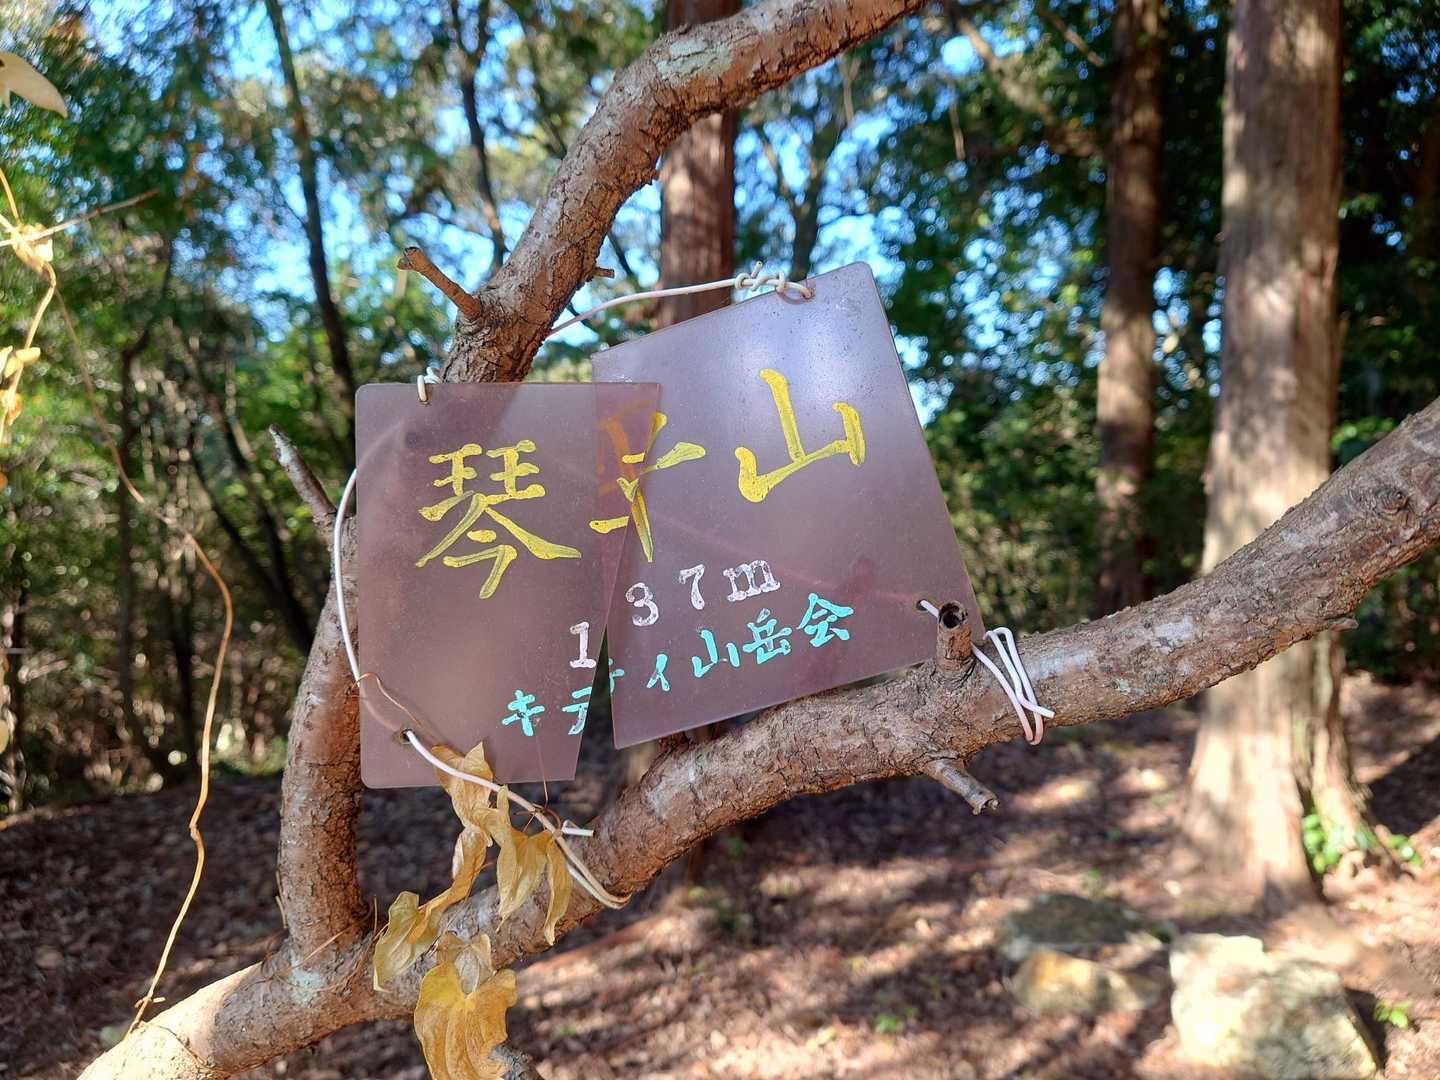 琴平山
137m
キティ山岳会